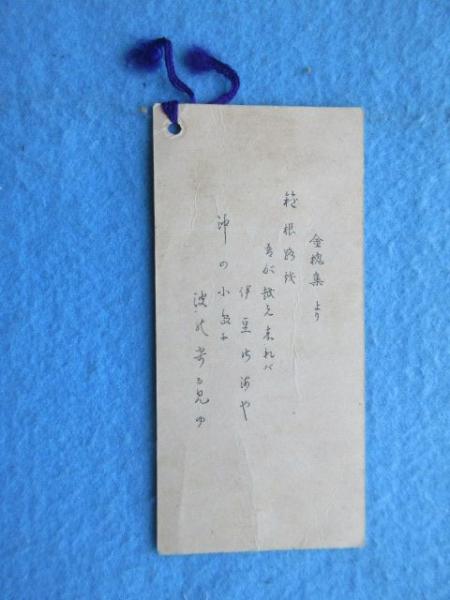 金槐集 より
箱根路を
吾が越え来れバ
伊豆の海や
沖の小島に
波の寄る見ゆ